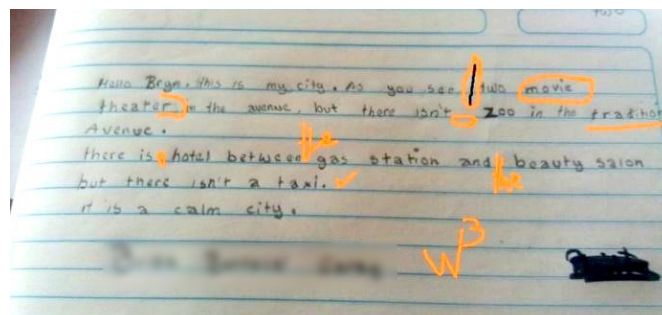 two
Hello Bryn. this is my city. As you see two movie
theater in the avenue, but there isn't zoo in the tradition
Avenue.
the
there is hotel between gas station and beauty salon
the
but there isn't a taxi.
it is a calm city.
W3